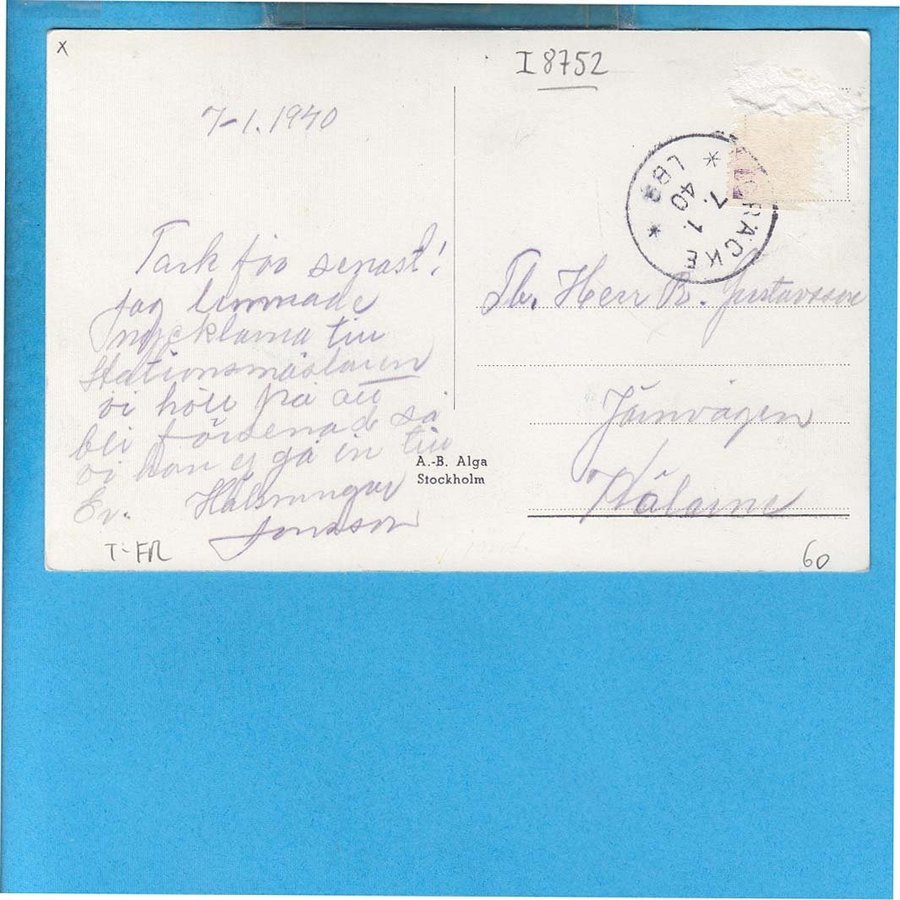 x
I 8752
7-1.1940
BRÄCKE
LBR
7.1.
40
Tack för senast!
Jag lämnade
nycklarna till
Stationsmästaren
vi höll på att
bli försenade så
vi kan ej gå in till
Er. Hälsningar
Jonsson
Tb. Herr R. Gustavsson
Järnvägen
Kälarne
A.-B. Alga
Stockholm
T-FR
60